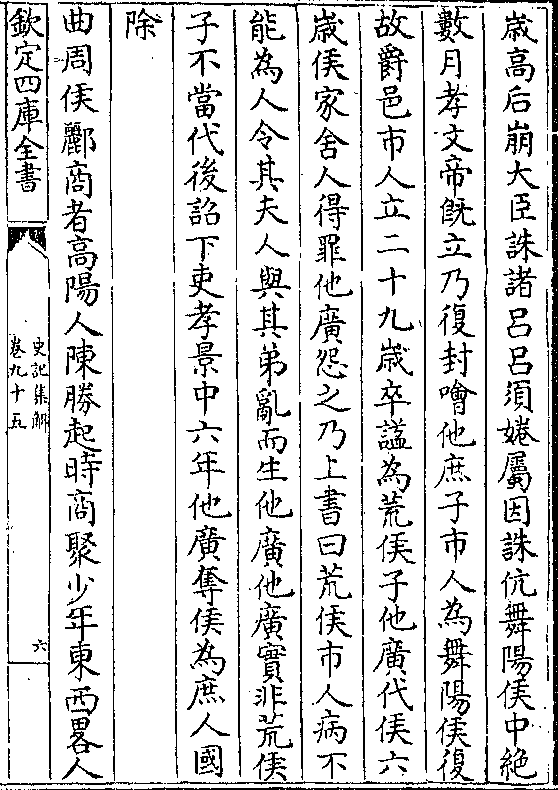 歲高后崩大臣誅諸吕吕須婘屬因誅伉舞陽侯中絶
數月孝文帝既立乃復封噲他庶子市人為舞陽侯復
故爵邑市人立二十九歲卒謚為荒侯子他廣代侯六
歲侯家舍人得罪他廣怨之乃上書曰荒侯市人病不
能為人令其夫人與其弟亂而生他廣他廣實非荒侯
子不當代後詔下吏孝景中六年他廣奪侯為庶人國
除
曲周侯酈商者高陽人陳勝起時商聚少年東西畧人
欽定四庫全書
史記集解
卷九十五
六